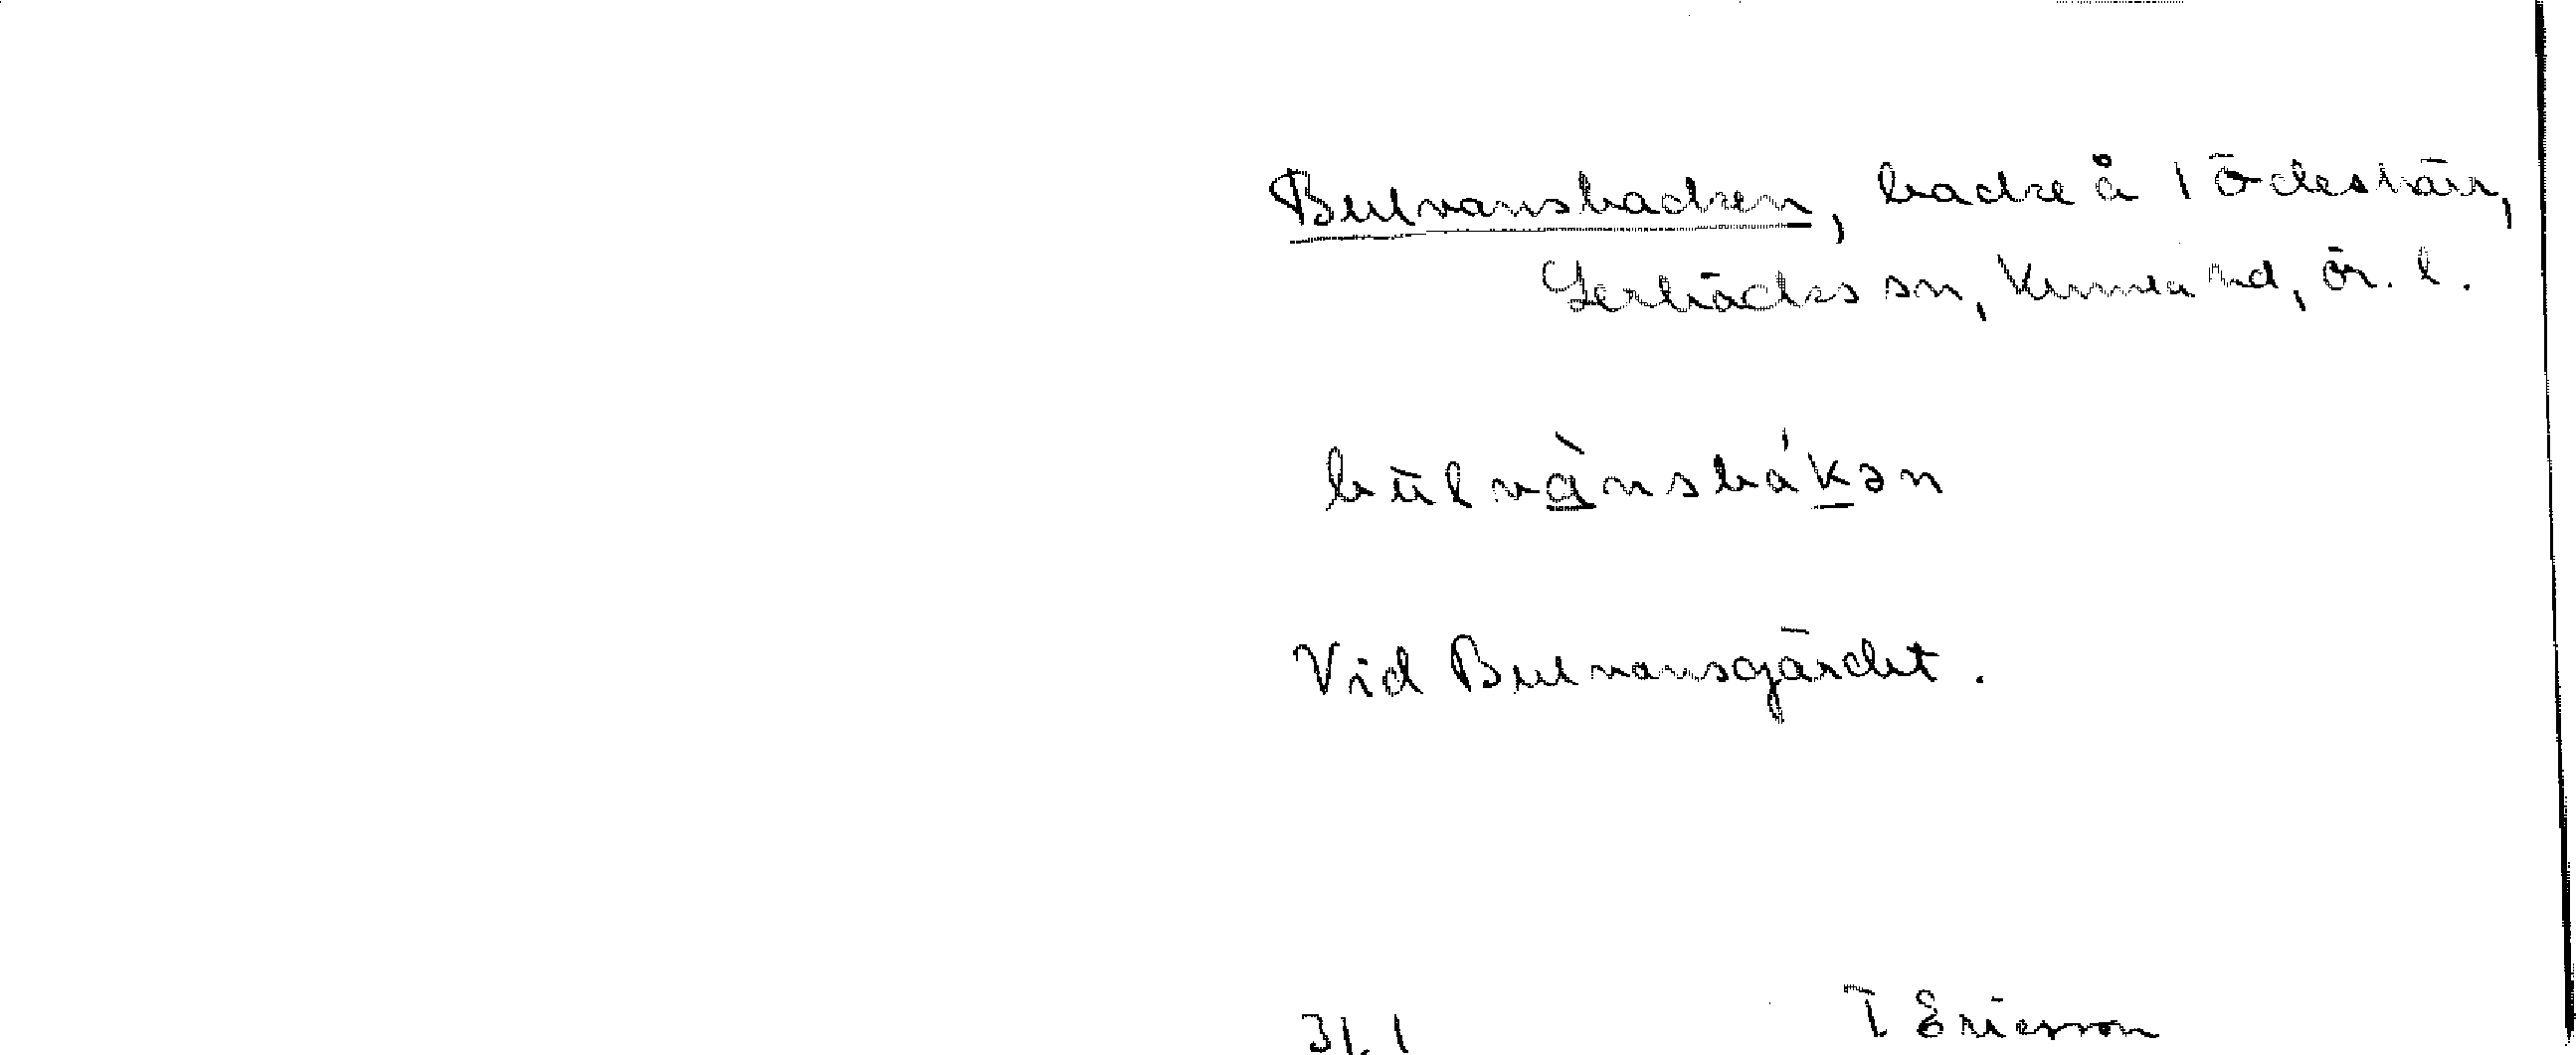 Bulvansbacken, backe å 1 Ödesbär,
Lerbäcks sn, Kumla hd, Ör. l.
bülvànsbák̲ən
Vid Bulvansgärdet.
31.1 T Ericsson